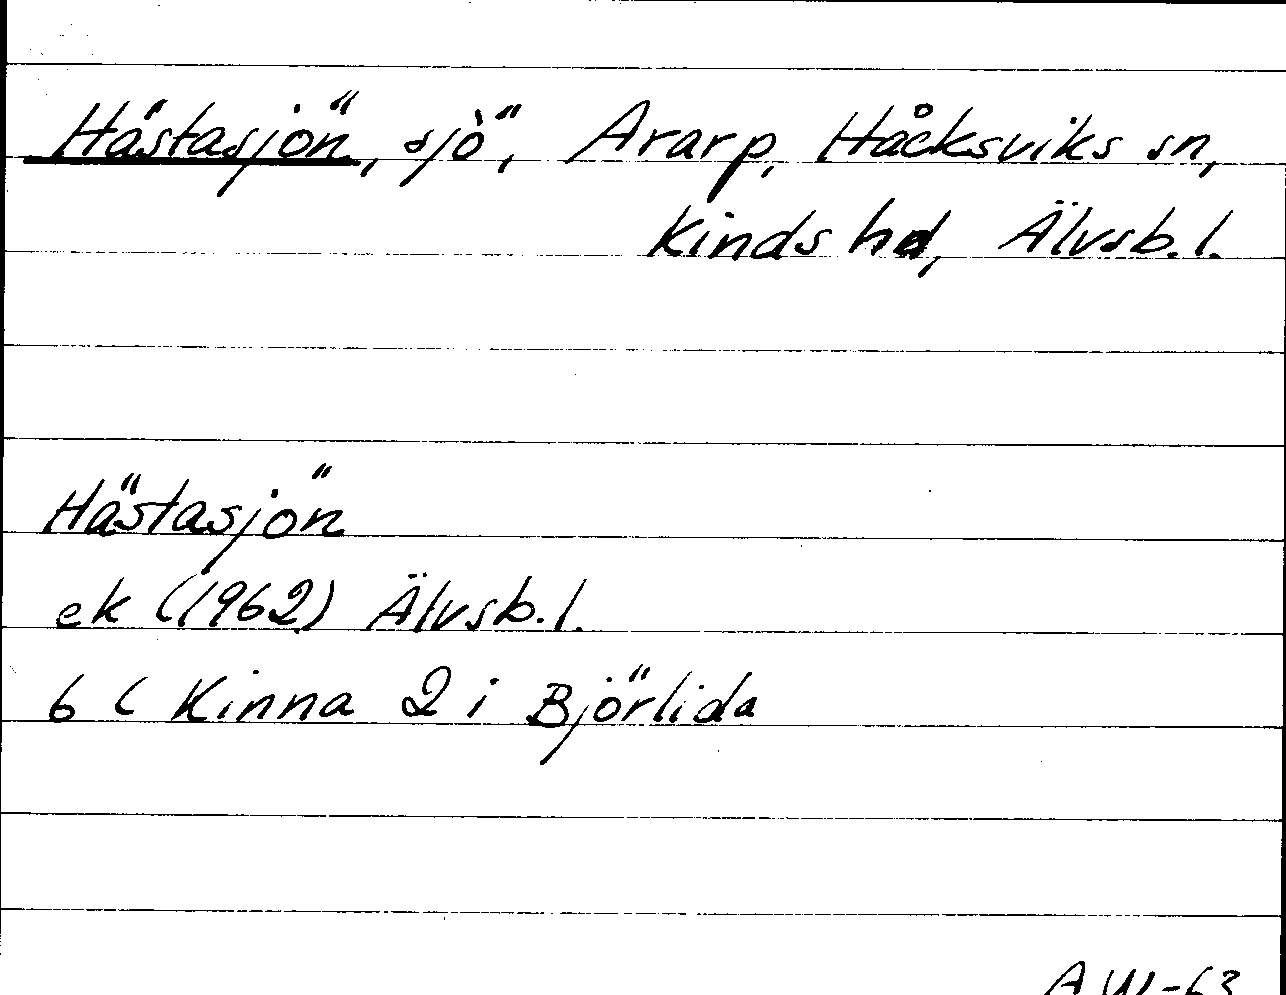 Hästasjön, sjö, Ararp, Håcksviks sn,
Kinds hd, Älvsb. l.
Hästasjön
ek (1962) Älvsb. l.
6 C Kinna 2 i Björlida